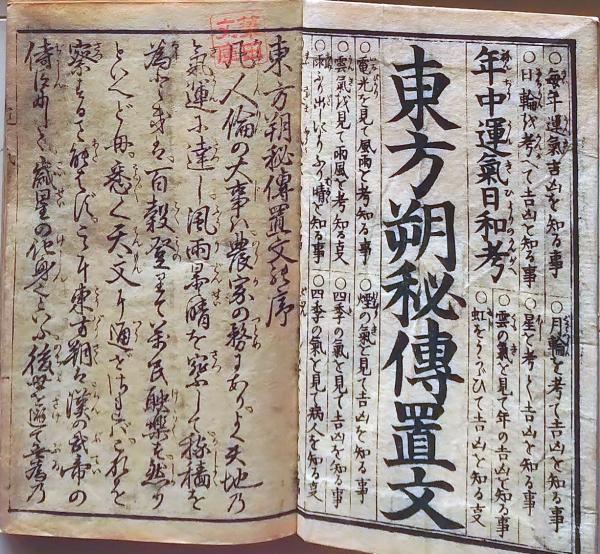 ○毎年運氣吉凶を知る事
○月輪を考て吉凶を知る事
○日輪を考へて吉凶を知る事
○星を考へて吉凶を知る事
年中運氣日和考
○雲の氣を見て年の吉凶を知る事
○虹をうかゞひて吉凶を知る支
東方朔秘傳置文
○電光を見て風雨を考知る事
○煙の氣を見て吉凶を知る事
○雲氣を見て雨風を考知る支
○四季の氣を見て吉凶を知る事
○雨ふり出しふり晴を知る事
○四季の氣を見て病人を知る支
東方朔秘傳置文序
人倫の大事は農家の務にありよく天地乃
氣運に達し風雨晴を察して稼穡を
為ときは百穀登りて萬民歓樂を然り
といへど毋悉く天文に通ざればこれを
察ること能はずこゝに東方朔は漢の武帝の
侍歳星の化身といふ後世を乃